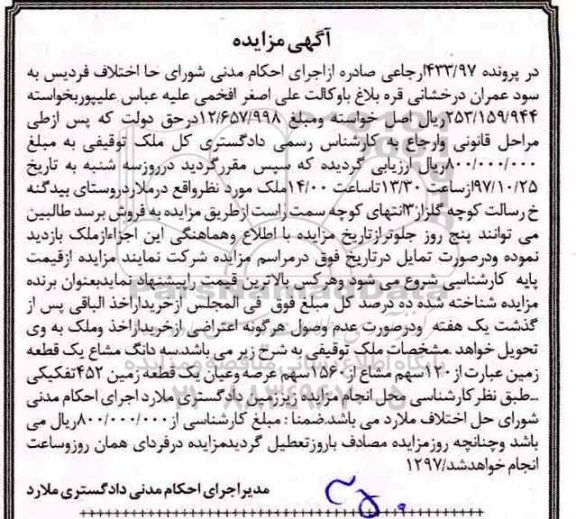 آگهی مزایده
در پرونده ۴۳۳/۹۷ارجاعی صادره ازاجرای احکام مدنی شورای حا اختلاف فردیس به
سود عمران درخشانی قره بلاغ باوکالت علی اصغر افخمی علیه عباس علیپوربخواسته
۲۵۳/۱۵۹/۹۴۴ریال اصل خواسته ومبلغ ۱۲/۶۵۷/۹۹۸درحق دولت که پس ازطی
مراحل قانونی وارجاع به کارشناس رسمی دادگستری کل ملک توقیفی به مبلغ
۸۰۰/۰۰۰/۰۰۰ریال ارزیابی گردیده که سپس مقررگردید درروزسه شنبه به تاریخ
۹۷/۱۰/۲۵ازساعت ۱۳/۳۰تاساعت ۱۴/۰۰ملک مورد نظرواقع درملاردروستای بیدگنه
خ رسالت کوچه گلزار۳انتهای کوچه سمت راست ازطریق مزایده به فروش برسد طالبین
می توانند پنج روز جلوترازتاریخ مزایده با اطلاع وهماهنگی این اجراءازملک بازدید
نموده ودرصورت تمایل درتاریخ فوق درمراسم مزایده شرکت نمایند مزایده ازقیمت
پایه کارشناسی شروع می شود وهرکس بالاترین قیمت راپیشنهاد نمایدبعنوان برنده
مزایده شناخته شده ده درصد کل مبلغ فوق فی المجلس ازخریداراخذ الباقی پس از
گذشت یک هفته ودرصورت عدم وصول هرگونه اعتراضی ازخریداراخذ وملک به وی
تحویل خواهد .مشخصات ملک توقیفی به شرح زیر می باشد.سه دانگ مشاع یک قطعه
زمین عبارت از ۱۲۰سهم مشاع از ۱۵۶سهم عرصه وعیان یک قطعه زمین ۴۵۲تفکیکی
...طبق نظرکارشناسی محل انجام مزایده زیرزمین دادگستری ملارد اجرای احکام مدنی
شورای حل اختلاف ملارد می باشد.ضمنا : مبلغ کارشناسی از۸۰۰/۰۰۰/۰۰۰ریال می
باشد وچنانچه روزمزایده مصادف باروزتعطیل گردیدمزایده درفردای همان روزوساعت
انجام خواهدشد/۱۲۹۷
مدیراجرای احکام مدنی دادگستری ملارد